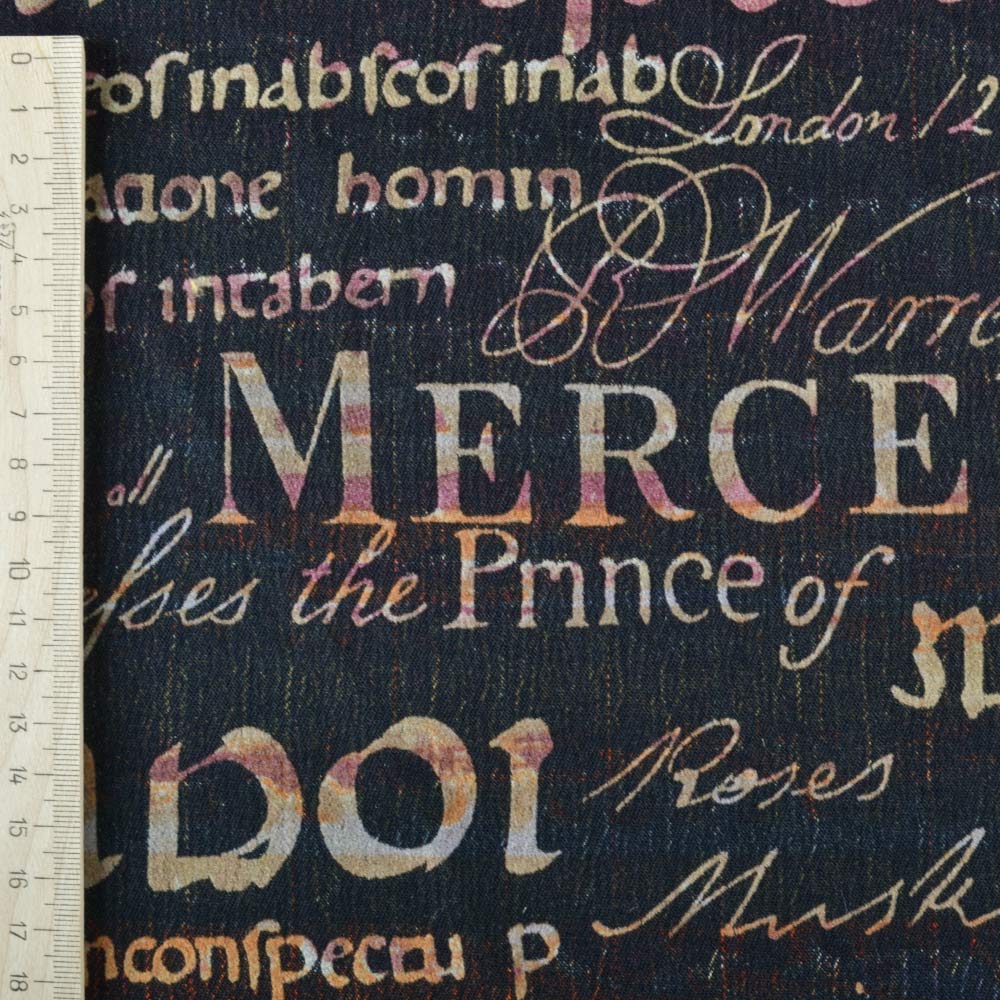 coſ inab ſcoſ inab London 12
aaone homin
R Warra
oſ intabern
MERCE
all
eſses the Prince of
DOI
Roses
Musk
nconſpectu p
0 1 2 3 4 5 6 7 8 9 10 11 12 13 14 15 16 17 18